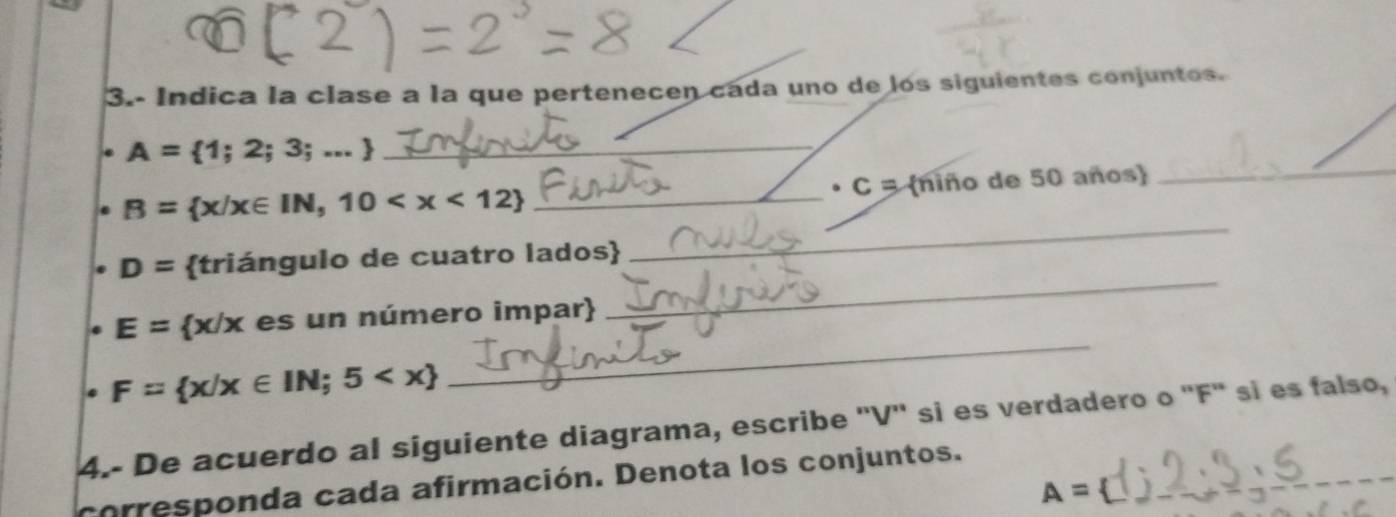 (2) = 2³ = 8
3.- Indica la clase a la que pertenecen cada uno de los siguientes conjuntos.
• A = {1; 2; 3; ... } Infinito
• B = {x/x∈ IN, 10 < x < 12} Finito • C = {niño de 50 años}
• D = {triángulo de cuatro lados} nulo
• E = {x/x es un número impar} Infinito
• F = {x/x ∈ IN; 5 < x} Infinito
4.- De acuerdo al siguiente diagrama, escribe "V" si es verdadero o "F" si es falso,
corresponda cada afirmación. Denota los conjuntos.
A = {1; 2; 3; 5